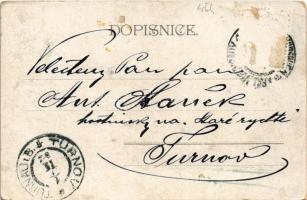 DOPISNICE.
Velectěný Pan pan
Ant. Staněk
hostinský na Staré rychtě
Turnov
TURNAU * TURNOV